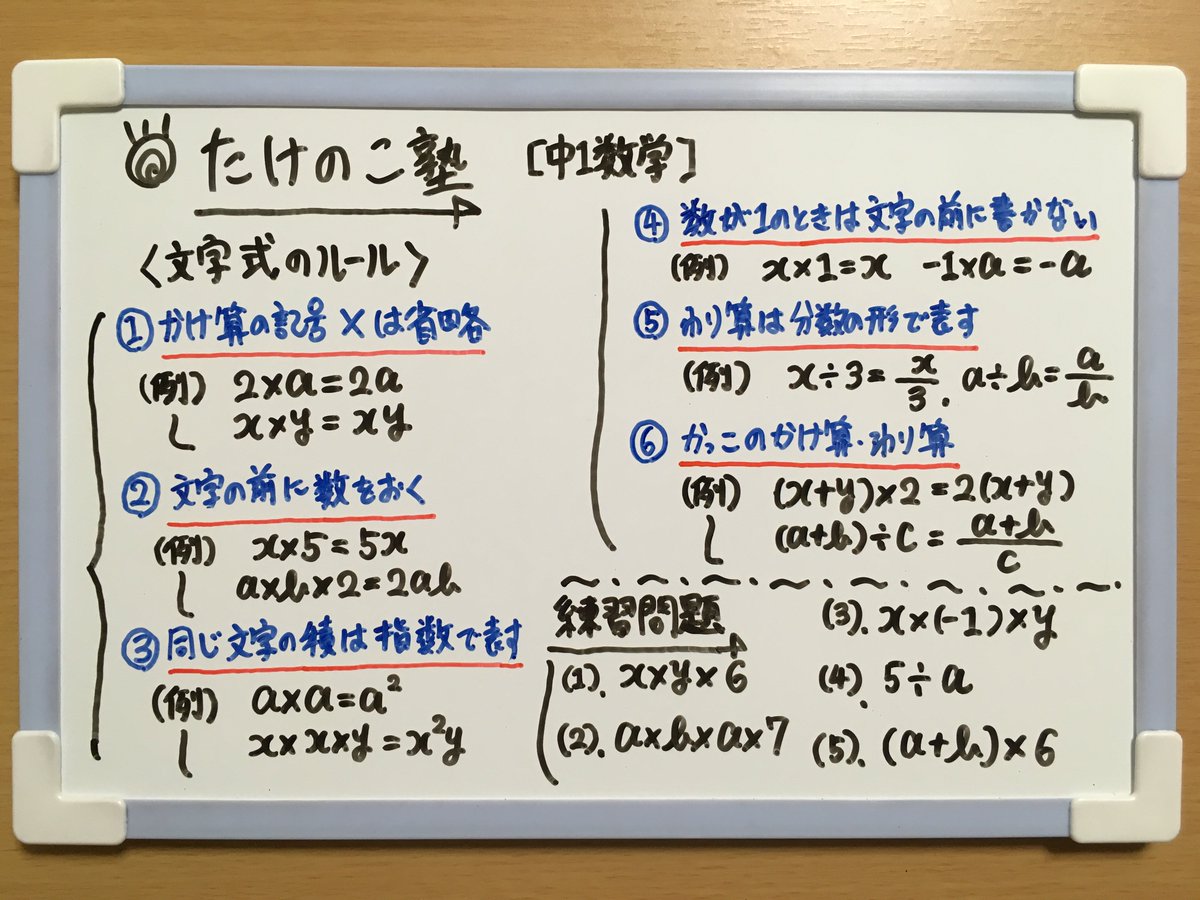 たけのこ塾 [中1数学]
〈文字式のルール〉
① かけ算の記号×は省略
(例) 2×a=2a
x×y=xy
② 文字の前に数をおく
(例) x×5=5x
a×b×2=2ab
③ 同じ文字の積は指数で表す
(例) a×a=a²
x×x×y=x²y
④ 数が1のときは文字の前に書かない
(例) x×1=x -1×a=-a
⑤ わり算は分数の形で表す
(例) x÷3=x/3, a÷b=a/b
⑥ かっこのかけ算・わり算
(例) (x+y)×2=2(x+y)
(a+b)÷c=(a+b)/c
練習問題
(1). x×y×6
(2). a×b×a×7
(3). x×(-1)×y
(4). 5÷a
(5). (a+b)×6